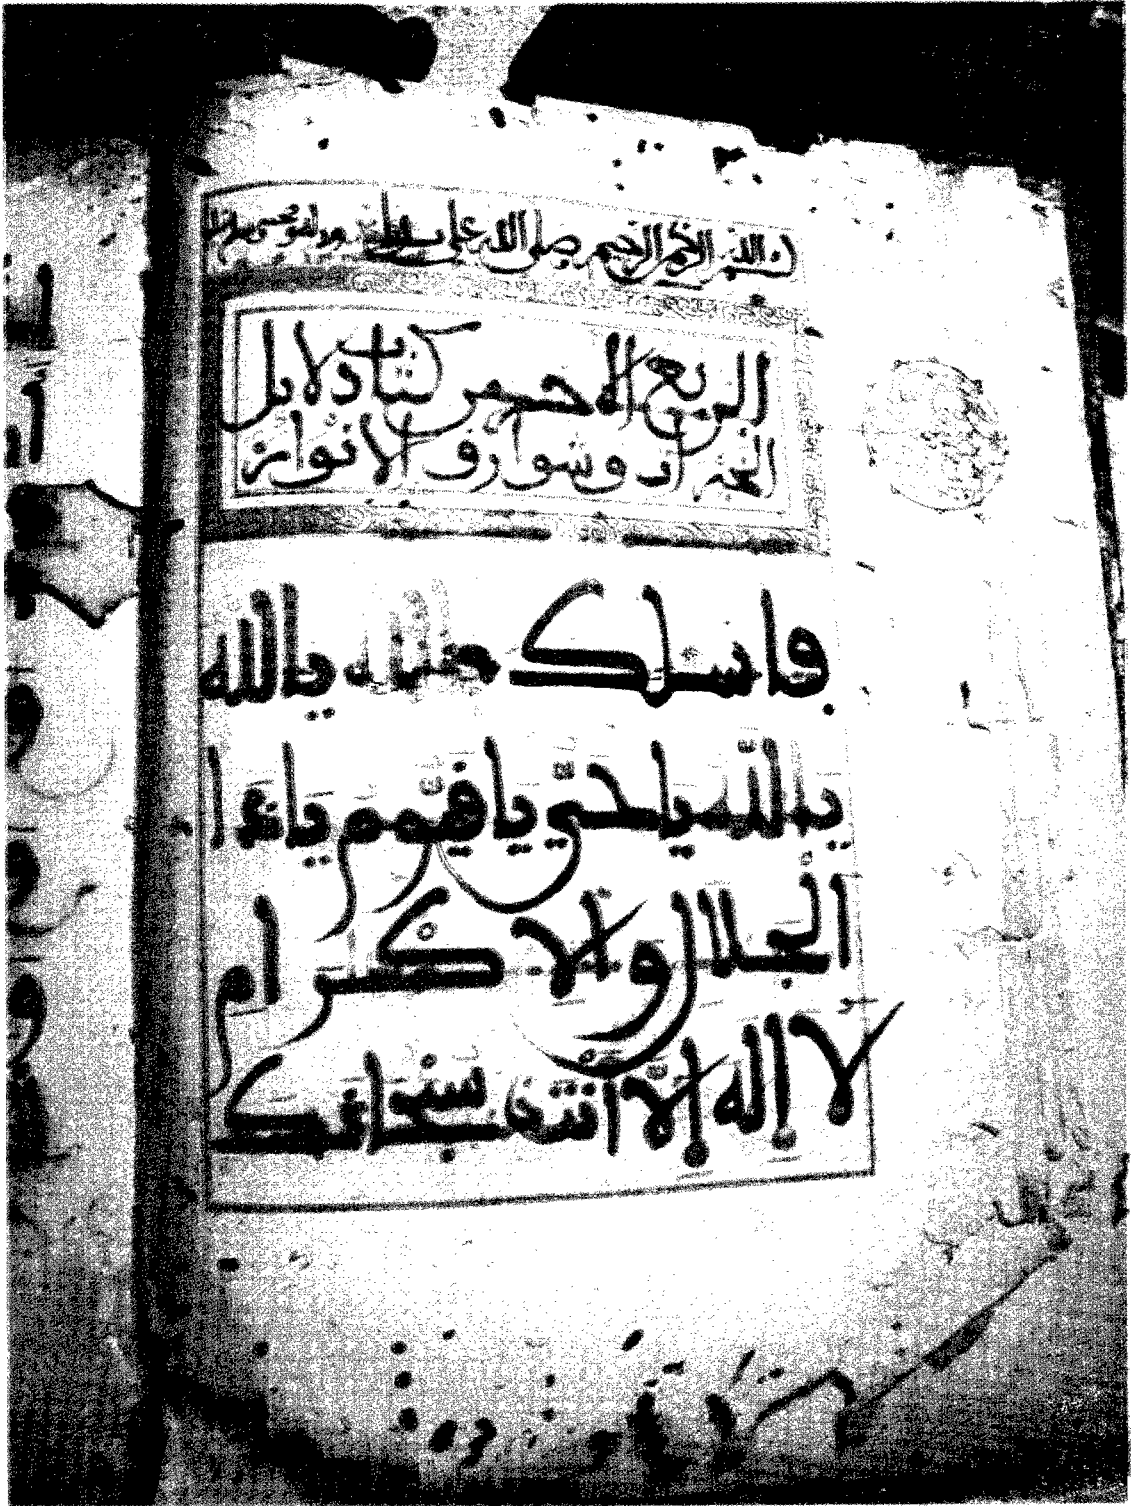 بسم الله الرحمن الرحيم صلى الله على
الربع الاخر من كتاب دلايل
الخيرات وشوارق الانوار
فاسلك يا الله
يا الله يا حي يا قيوم يا ذا
الجلال والاكرام
لا إله إلا أنت سبحانك